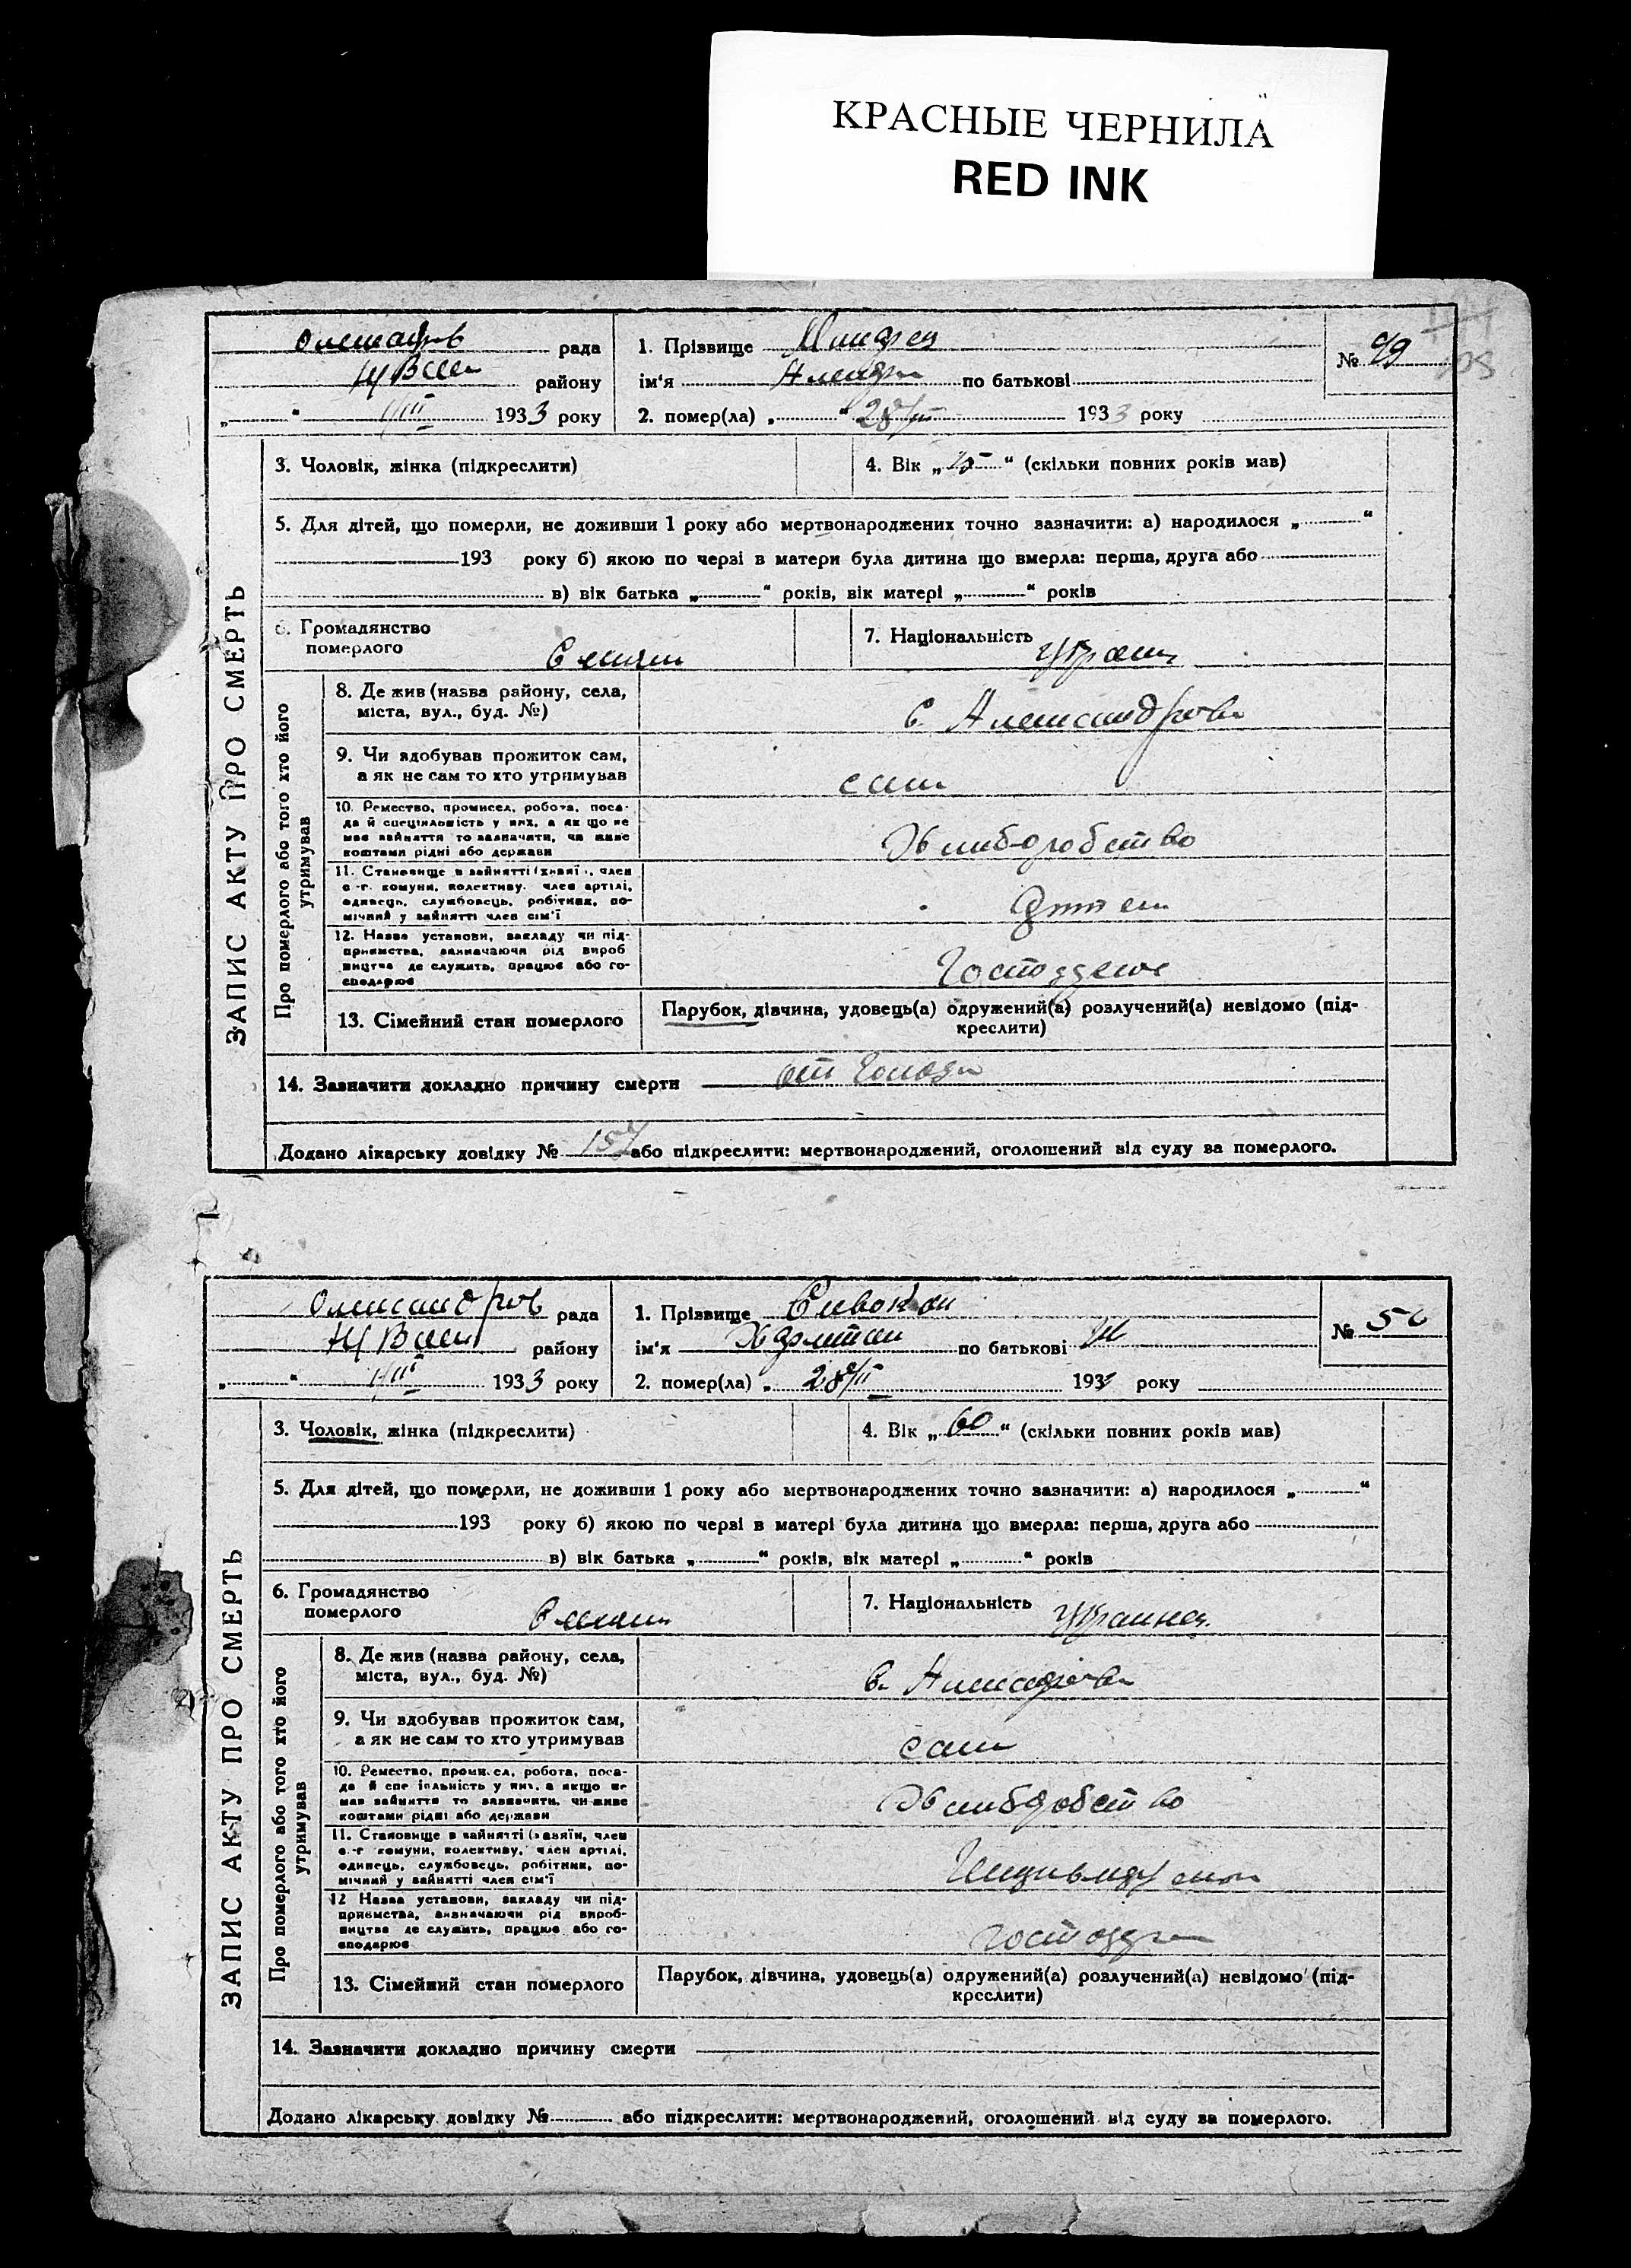 КРАСНЫЕ ЧЕРНИЛА
RED INK
рада
району
„ “ 1/III 1933 року
1. Прізвище
ім'я по батькові
2. помер(ла) „ “ 28/II 1933 року
№ 49
ЗАПИС АКТУ ПРО СМЕРТЬ
3. Чоловік, жінка (підкреслити)
4. Вік „ “ (скільки повних років мав)
5. Для дітей, що померли, не доживши 1 року або мертвонароджених точно зазначити: а) народилося „ “
193 року б) якою по черзі в матери була дитина що вмерла: перша, друга або
в) вік батька „ “ років, вік матері „ “ років
6. Громадянство
померлого
7. Національність Украин
Про померлого або того хто його
утримував
8. Де жив (назва району, села,
міста, вул., буд. №)
с. Александров
9. Чи здобував прожиток сам,
а як не сам то хто утримував
сам
10. Ремество, промисел, робота, поса-
да й спеціяльність у них, а як що не
мав зайняття то зазначити, чи живе
коштами рідні або держави
Хлиборобство
11. Становище в зайнятті (хазяїн, член
с.-г. комуни, колективу, член артілі,
одинець, службовець, робітник, по-
мічний у зайнятті член сім'ї
12. Назва установи, закладу чи під-
приємства, зазначаючи рід вироб
ництва де служить, працює або го-
сподарює
13. Сімейний стан померлого
Парубок, дівчина, удовець(а) одружений(а) розлучений(а) невідомо (під-
креслити)
14. Зазначити докладно причину смерти от голода
Додано лікарську довідку № 157 або підкреслити: мертвонароджений, оголошений від суду за померлого.
Олександров рада
району
„ “ 1/III 1933 року
1. Прізвище Сивокон
ім'я Харитон по батькові
2. помер(ла) „ 28/II 193 року
№ 50
ЗАПИС АКТУ ПРО СМЕРТЬ
3. Чоловік, жінка (підкреслити)
4. Вік „ 60 “ (скільки повних років мав)
5. Для дітей, що померли, не доживши 1 року або мертвонароджених точно зазначити: а) народилося „ “
193 року б) якою по черзі в матері була дитина що вмерла: перша, друга або
в) вік батька „ “ років, вік матері „ “ років
6. Громадянство
померлого
7. Національність Украинец
Про померлого або того хто його
утримував
8. Де жив (назва району, села,
міста, вул., буд. №)
9. Чи здобував прожиток сам,
а як не сам то хто утримував
сам
10. Ремество, промисел, робота, поса-
да й спеціяльність у них, а якщо не
мав зайняття то зазначити, чи живе
коштами рідні або держави
11. Становище в зайнятті (хазяїн, член
с.-г комуни, колективу, член артілі,
одинець, службовець, робітник, по-
мічний у зайнятті член сім'ї
12 Назва установи, закладу чи під-
приємства, зазначаючи рід вироб-
ництва де служить, працює або го-
сподарює
13. Сімейний стан померлого
Парубок, дівчина, удовець(а) одружений(а) розлучений(а) невідомо (під-
креслити)
14. Зазначити докладно причину смерти
Додано лікарську довідку № або підкреслити: мертвонароджений, оголошений від суду за померлого.